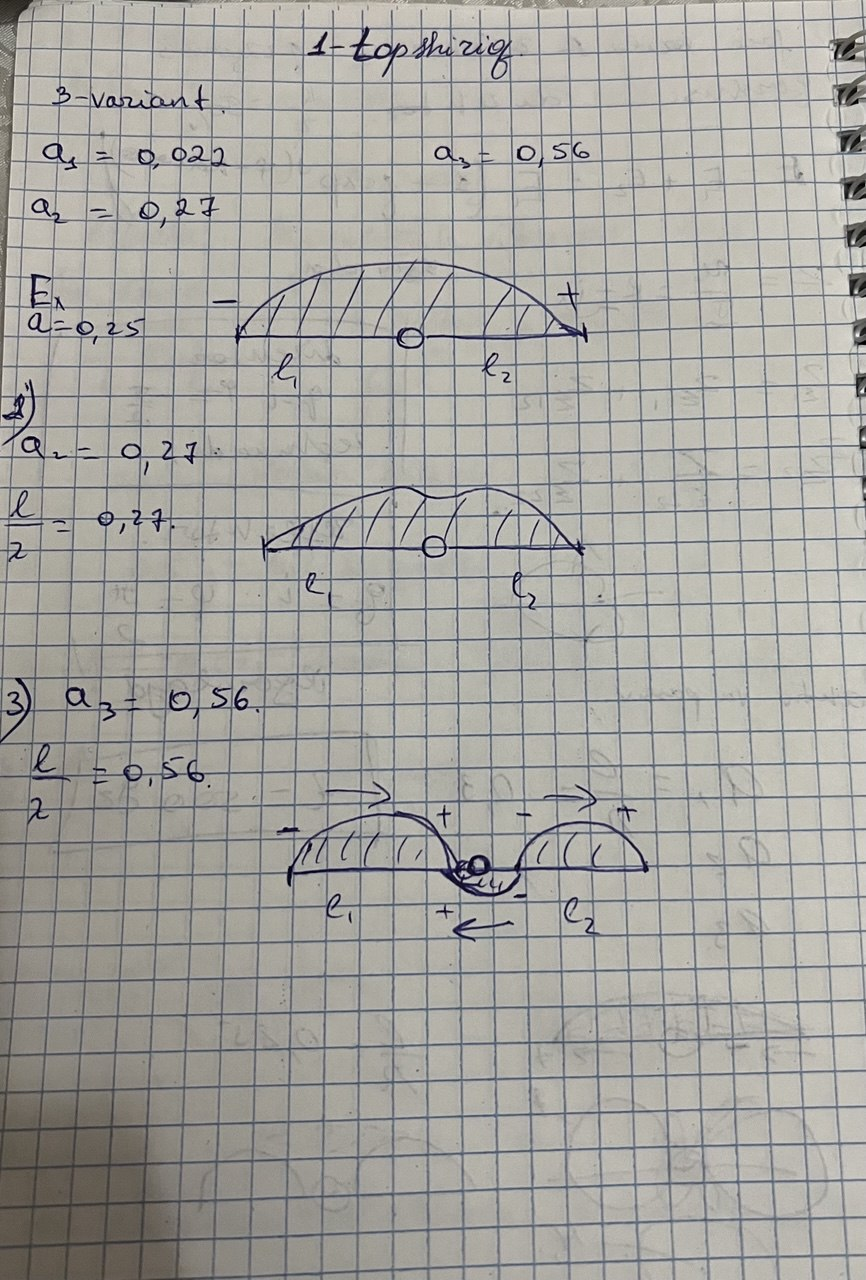 1-topshiriq
3-variant.
a₁ = 0,022 a₃ = 0,56
a₂ = 0,27
Ex
a=0,25
- +
l₁ l₂
2)
a₂ = 0,27
l/λ = 0,27.
l₁ l₂
3) a₃ = 0,56.
l/λ = 0,56.
- → + - → +
l₁ + ← - l₂